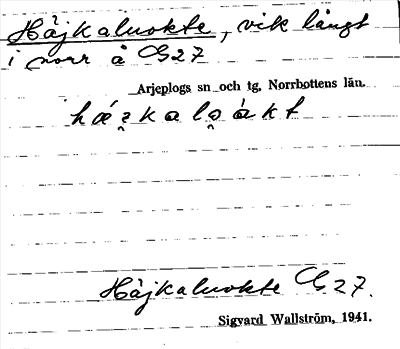 Håjkaluokte, vik långt
i norr å G27
Arjeplogs sn och tg, Norrbottens län.
Håjkaluokte G27.
Sigvard Wallström, 1941.